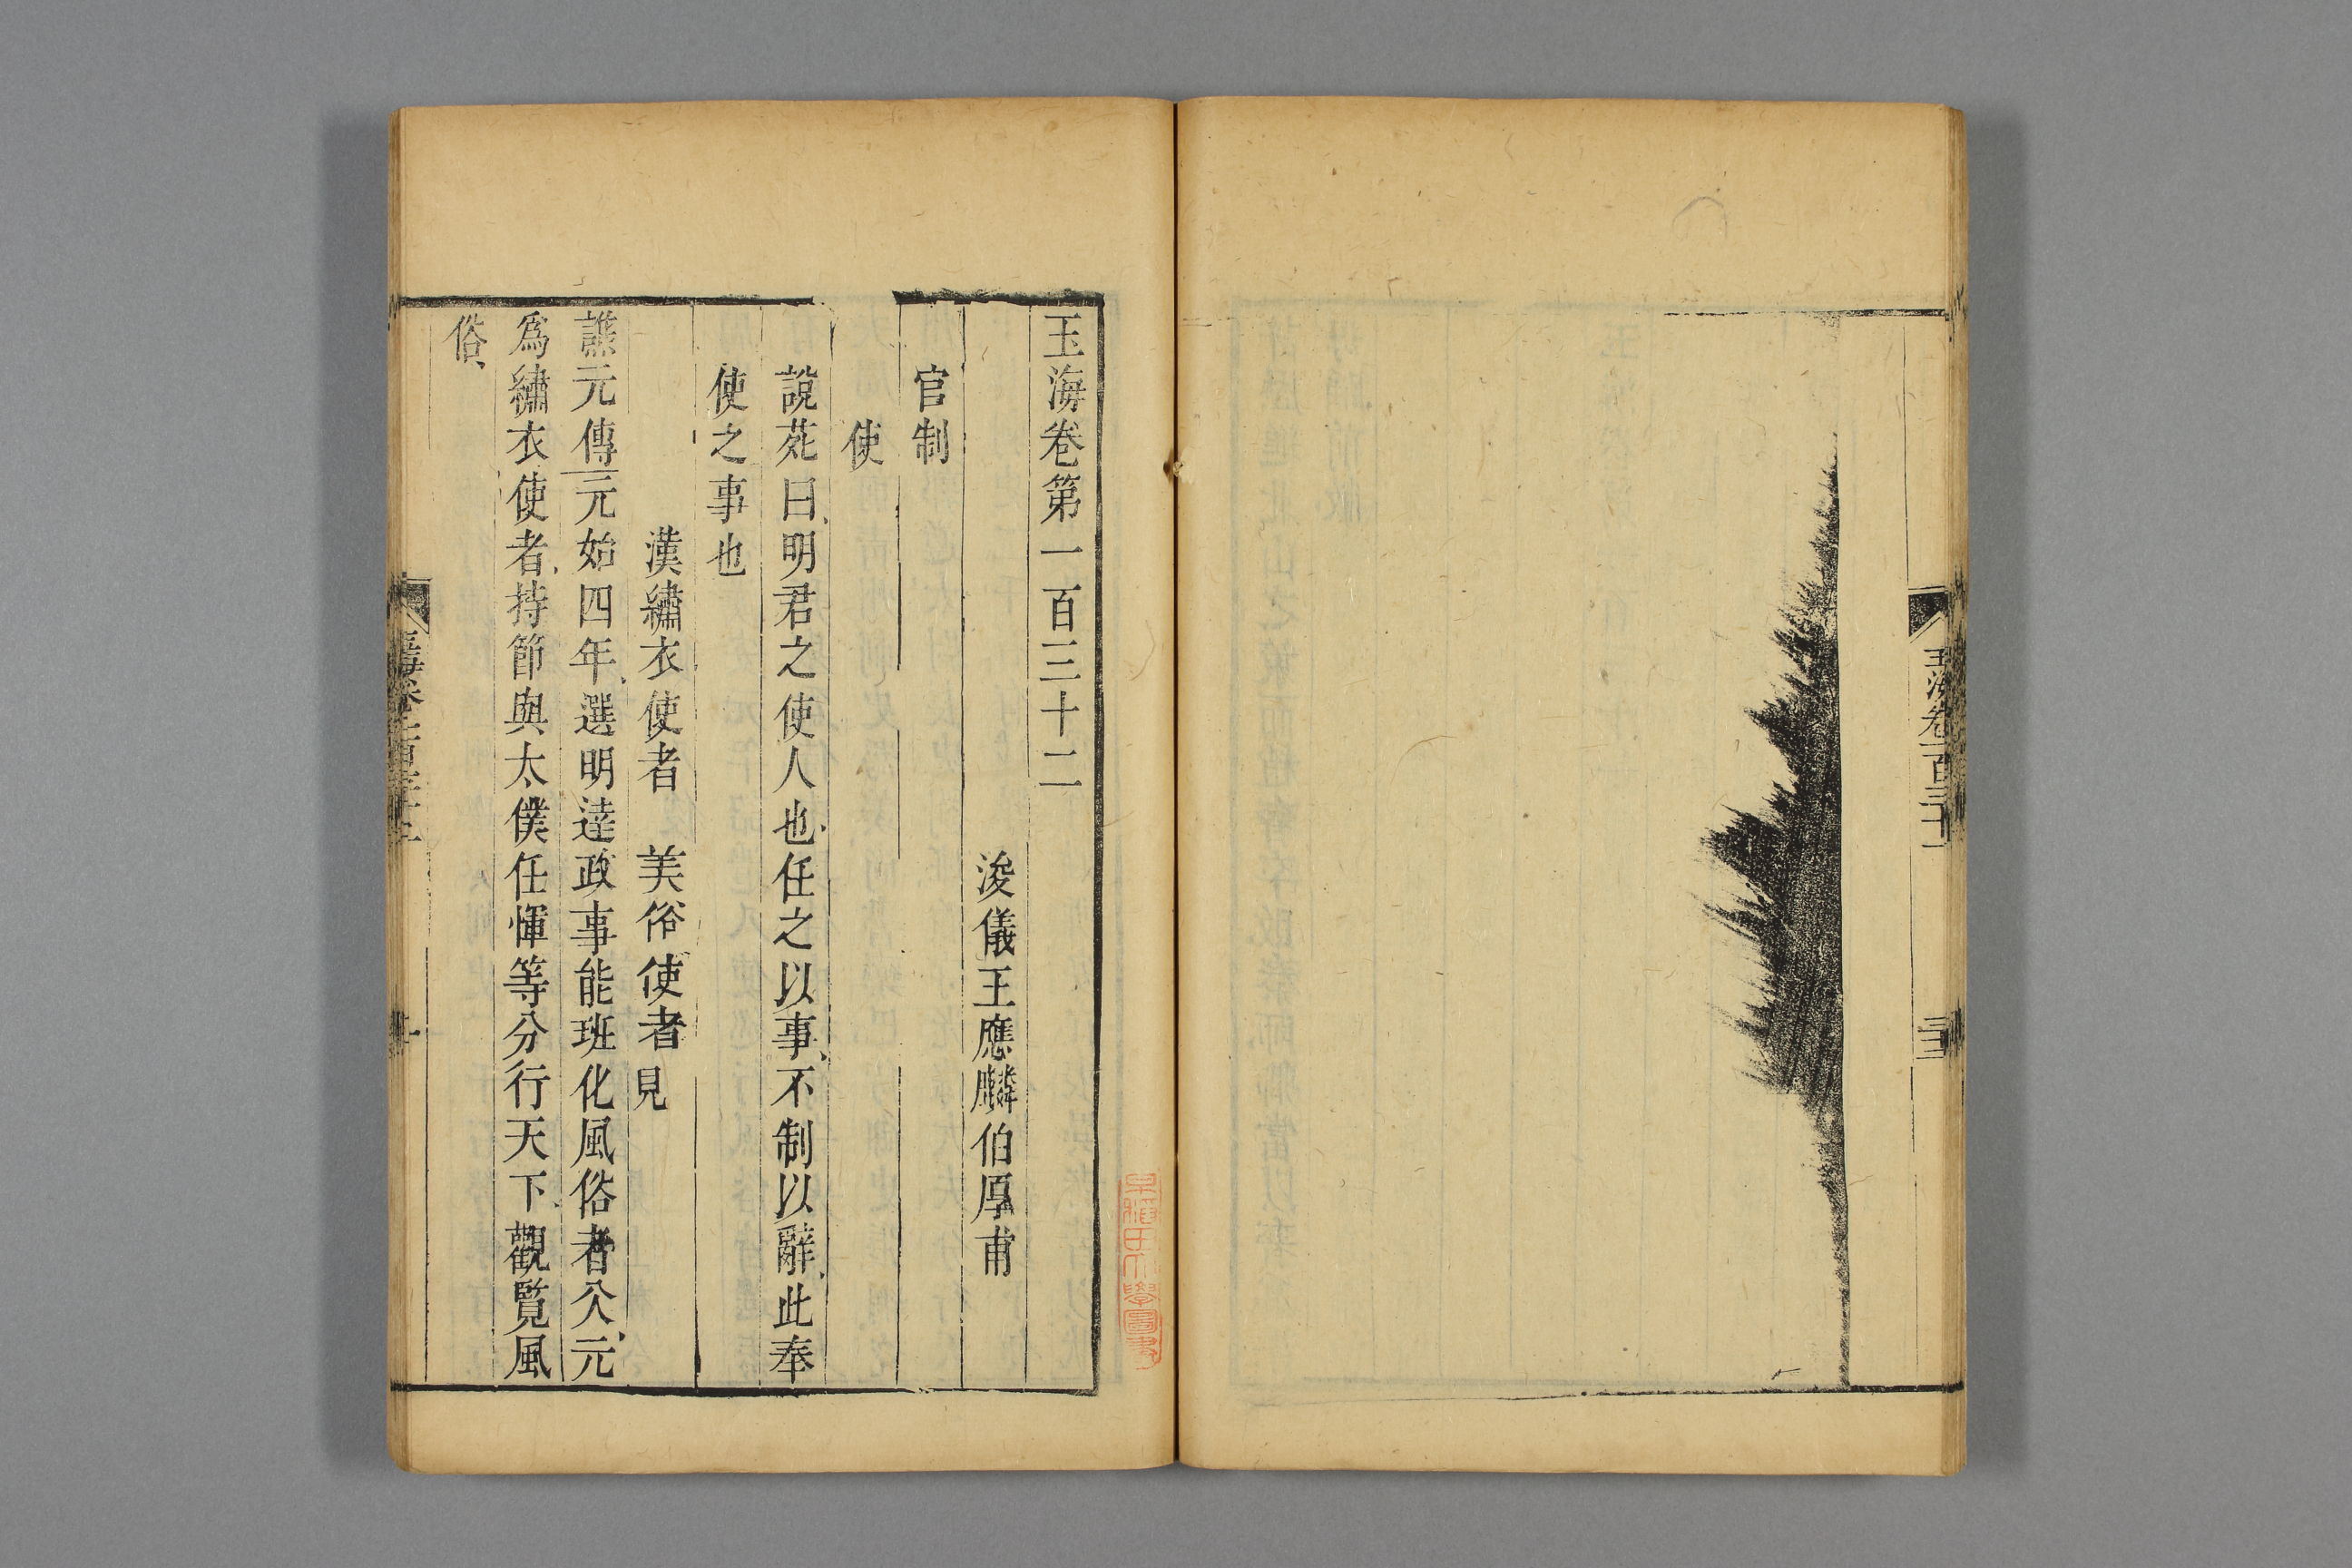 玉海卷一百三十一
三十三
玉海卷第一百三十二
浚儀王應麟伯厚甫
官制
使
說苑曰明君之使人也任之以事不制以辭此奉
使之事也
漢繡衣使者　美俗使者見
譙元傳元始四年選明達政事能班化風俗者八元
爲繡衣使者持節與太僕任惲等分行天下觀覽風
俗
早稲田大學圖書